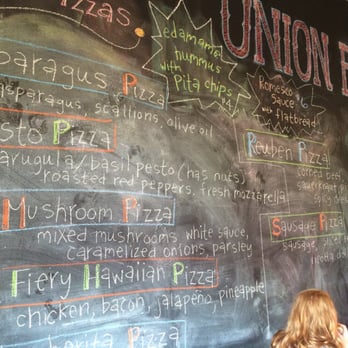 Pizzas
UNION
edamame
hummus
with
Pita chips
$4
Romesco
Sauce $6
w/ flatbread
paragus Pizza
asparagus, scallions, olive oil
sto Pizza
arugula/basil pesto (has nuts)
roasted red peppers, fresh mozzarella
Mushroom Pizza
mixed mushrooms, white sauce,
caramelized onions, parsley
Fiery Hawaiian Pizza
chicken, bacon, jalapeño, pineapple
Reuben Pizza
corned beef
sauerkraut
Sausage Pizza
sausage,